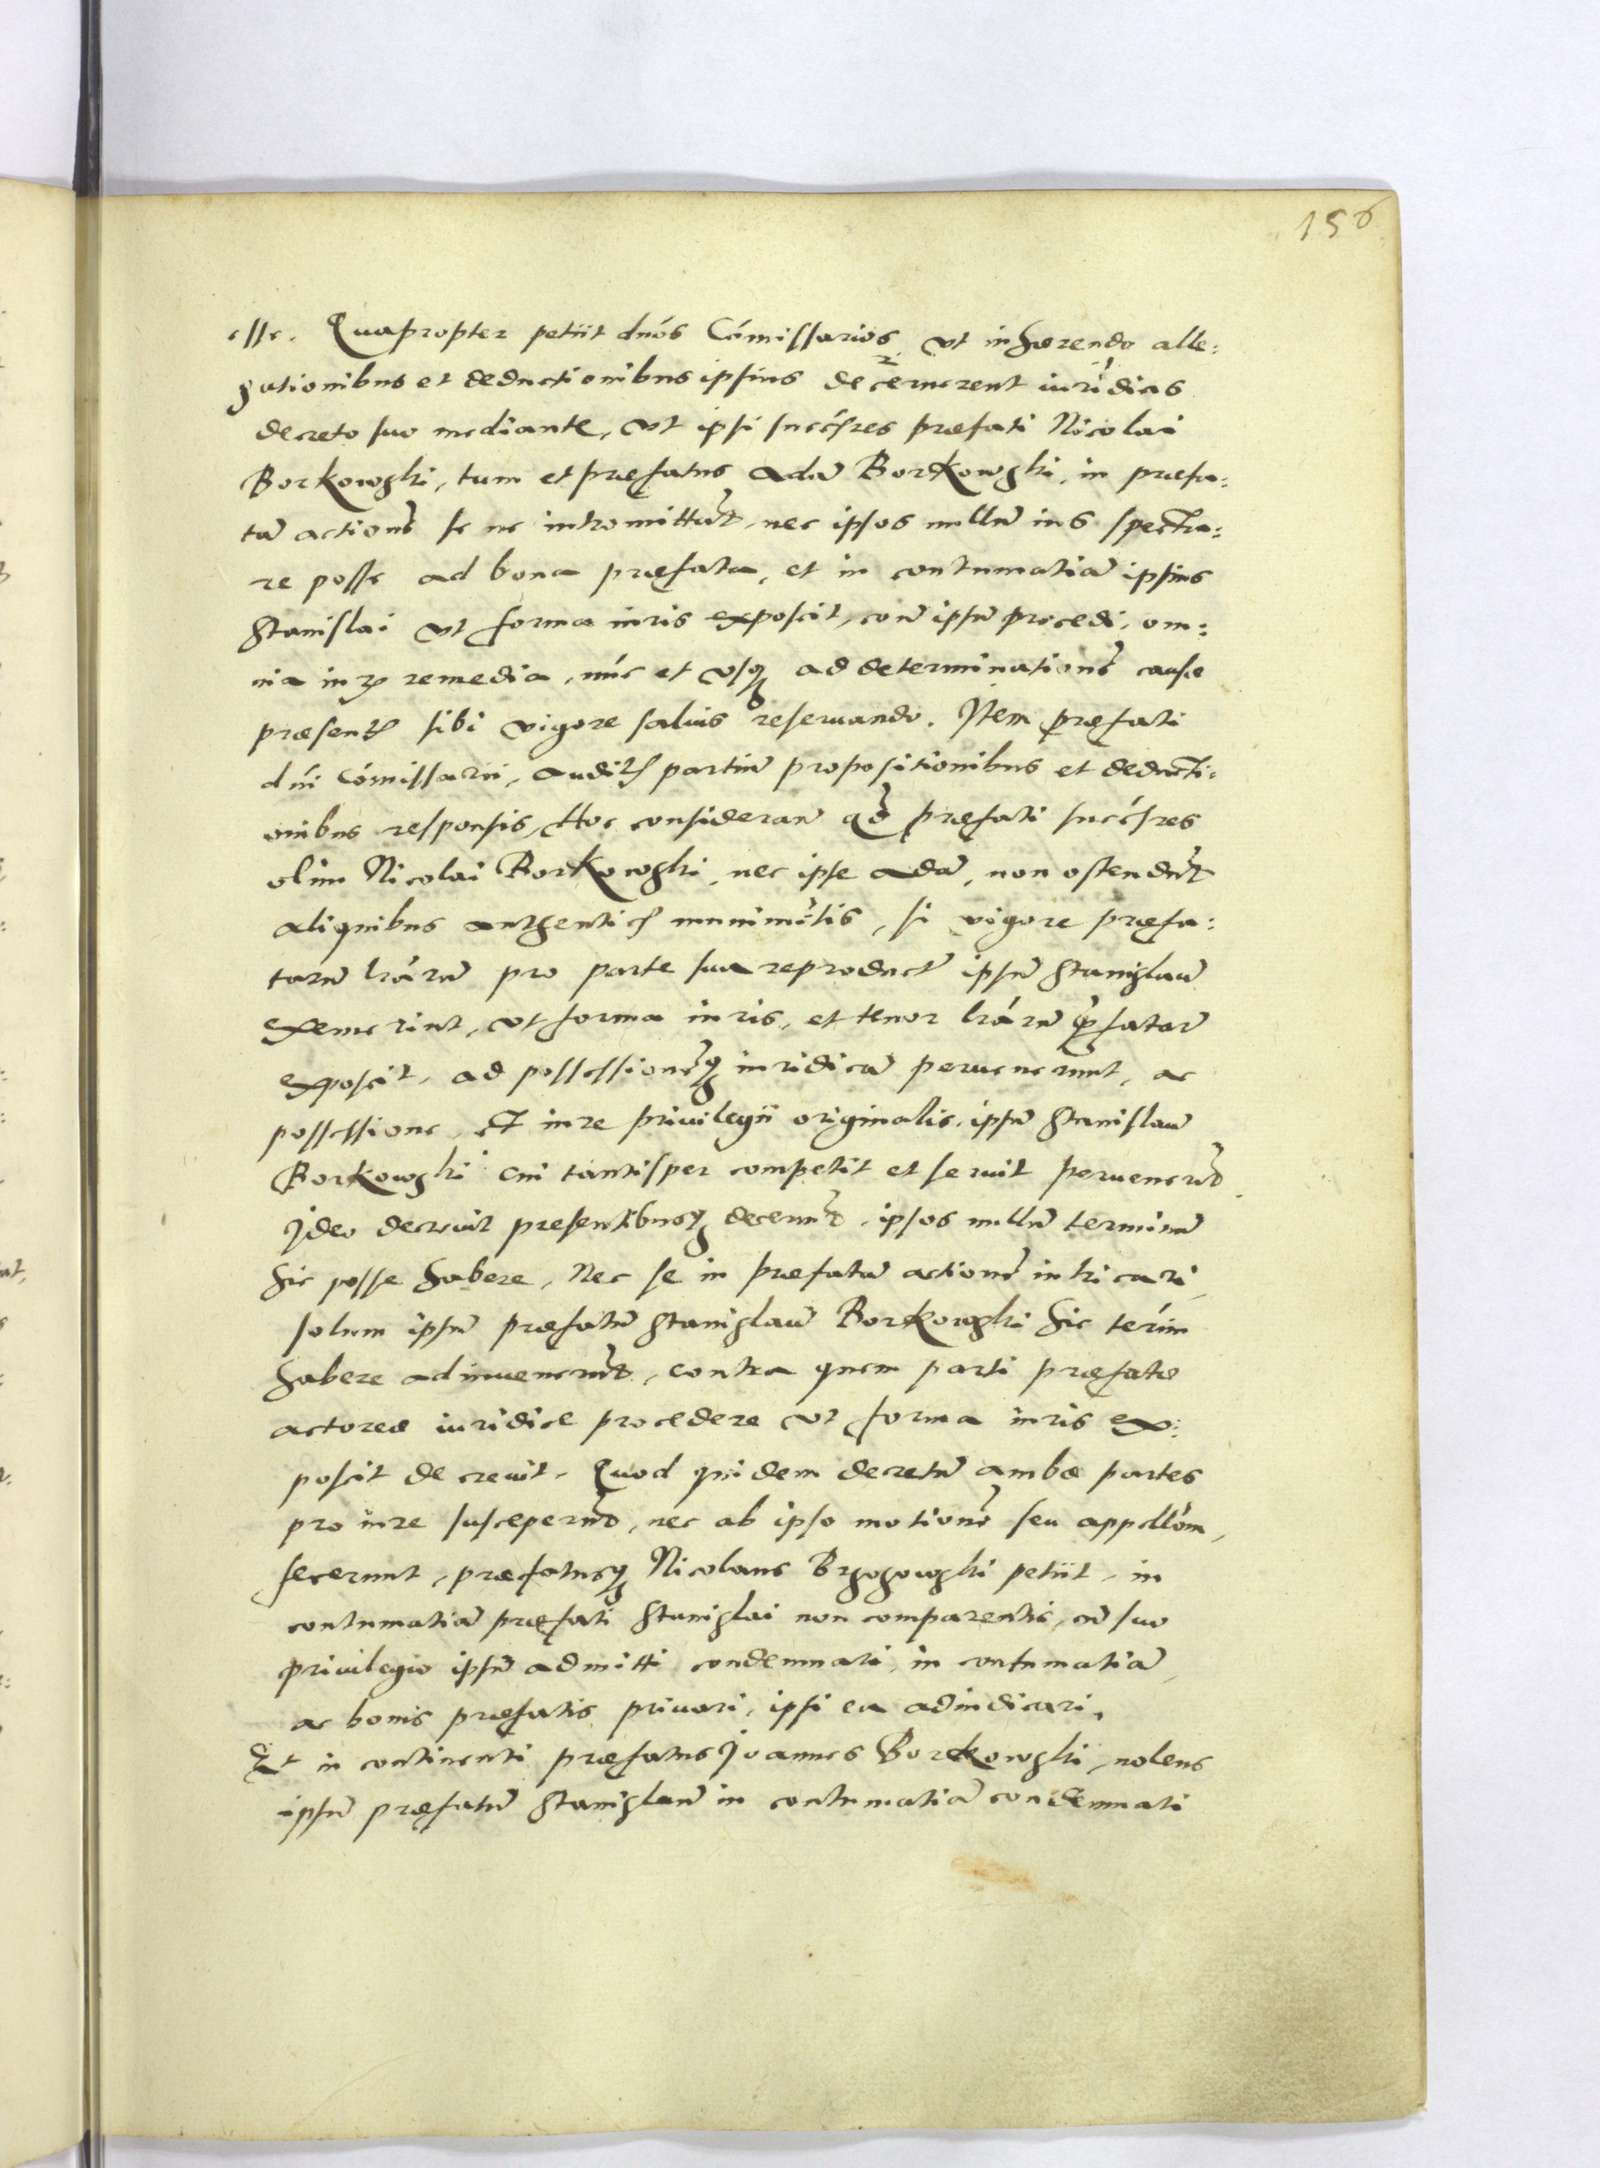 156
esse. Quapropter petiit dnós Cómissarios, vt inhærendo alle:
gationibus et deductionibus ipsius decernerent iuridicas
decreto suo mediante, vt ipsi succsres præfati Nicolai
Borkowski, tum et præfatus Adā Borkowski, in præfa:
tā actionē se ne intromittāt, nec ipsos nullū ius specta:
re posse ad bona præfata, et in contumatiā ipsius
Stanislai vt forma iuris exposcit, con͞ ipsū procedi, om:
nia iuꝝ remedia, núc et vsqꝫ ad determinationē causæ
præsentꝭ sibi vigore saluis reseruando. Item præfati
dńi Cómissarii, auditꝭ partiū propositionibus et deducti:
onibus responsis, Hoc considerantꝰ qđ præfati succsres
olim Nicolai Borkowski, nec ipse Adā, non ostendūt
aliquibus authenticꝭ munimētis, si vigore præfa:
tarū lrárū pro parte sua reproductꝭ ipsū Stanislaū
exemerint, vt forma iuris, et tenor lrárū p̄fatarū
exposcit, ad possessionēqꝫ iuridicā peruenerunt, ac
possessione, et iure priuilegii originalis, ipsū Stanislaū
Borkowski cui tantisper competit et seruit peruenerūt.
Ideo decreuit presentibusqꝫ decernūt, ipsos nullū terminū
hic posse habere, Nec se in præfatā actionē intricari,
solum ipsū præfatū Stanislaū Borkowski hic termí
habere adinuenerūt, contra quem parti præfatæ
actoreæ iuridice procedere vt forma iuris ex:
poscit decreuit. Quod quidem decretū ambæ partes
pro iure susceperūt, nec ab ipso motionē seu appellóm,
fecerunt, præfatusqꝫ Nicolaus Brzozowski petiit, in
contumatiā præfati Stanislai non comparentis, cū suo
priuilegio ipsū admitti condemnari, in contumatiā,
ac bonis præfatis priuari, ipsi ea adiudicari.
Et in continenti præfatus Joannes Borkowski, nolens
ipsū præfatū Stanislaū in contumatiā condemnati